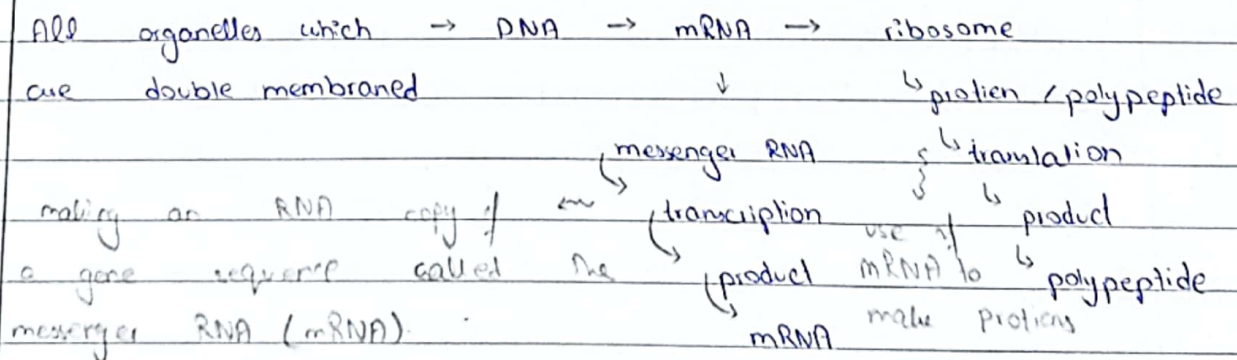 All organelles which → DNA → mRNA → ribosome
are double membraned ↓ ↳ protien / polypeptide
↳ messenger RNA ↳ translation
making an RNA copy of ← ↳ transcription use of ↳ product
a gene sequence called the ↳ product mRNA to ↳ polypeptide
messenger RNA (mRNA). ↳ mRNA make protiens